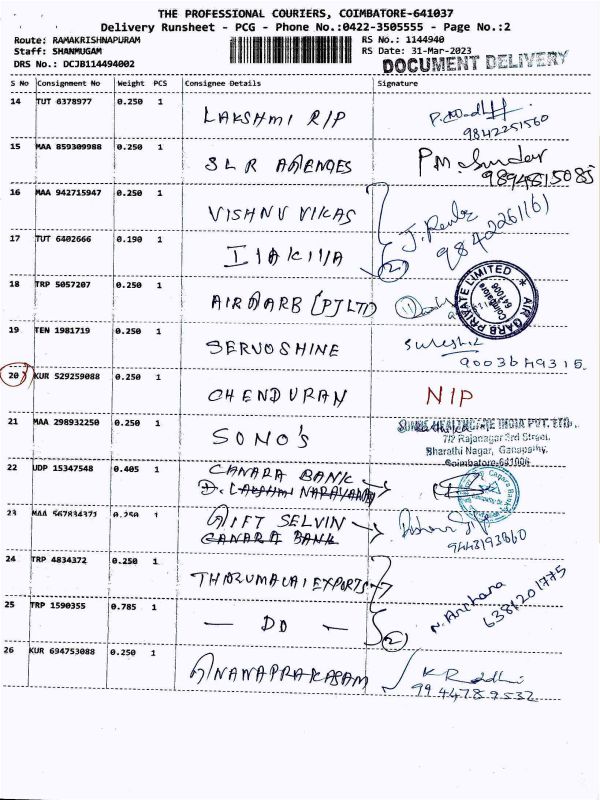 THE PROFESSIONAL COURIERS, COIMBATORE-641037
Delivery Runsheet - PCG - Phone No.:0422-3505555 - Page No.:2
Route: RAMAKRISHNAPURAM RS No.: 1144940
Staff: SHANMUGAM RS Date: 31-Mar-2023
DRS No.: DCJB114494002 DOCUMENT DELIVERY
S No Consignment No Weight PCS Consignee Details Signature
14 TUT 6378977 0.250 1 LAKSHMI R/P
9842251560
15 MAA 859309988 0.250 1 SLR AGENGES P.M. Sundar
9894815085
16 MAA 942715947 0.250 1 VISHNU VIKAS
17 TUT 6402666 0.190 1 (2)
18 TRP 5057207 0.250 1 AIRGARB (P) LTD
AIR GARB PRIVATE LIMITED * Coimbatore 641006
19 TEN 1981719 0.250 1 SERVOSHINE Sureshk
9003649315.
20 KUR 529259088 0.250 1 CHENDURAN NIP
21 MAA 298932250 0.250 1 SONO'S HEALTHCARE INDIA PVT. LTD.,
7/2 Rajanagar 3rd Street,
Bharathi Nagar, Ganapathy,
Coimbatore-641006
22 UDP 15347548 0.405 1 CANARA BANK
D. LAKSHMI NARAYANA
Canara Bank
23 MAA 567834371 0.250 1 GIFT SELVIN
CANARA BANK
9443193860
24 TRP 4834372 0.250 1 THIRUMALAI EXPORTS
25 TRP 1590355 0.785 1 — DO — (2) N. Archana
6381201775
26 KUR 694753088 0.250 1 GNANAPRAKASAM K Radhi
9944789532